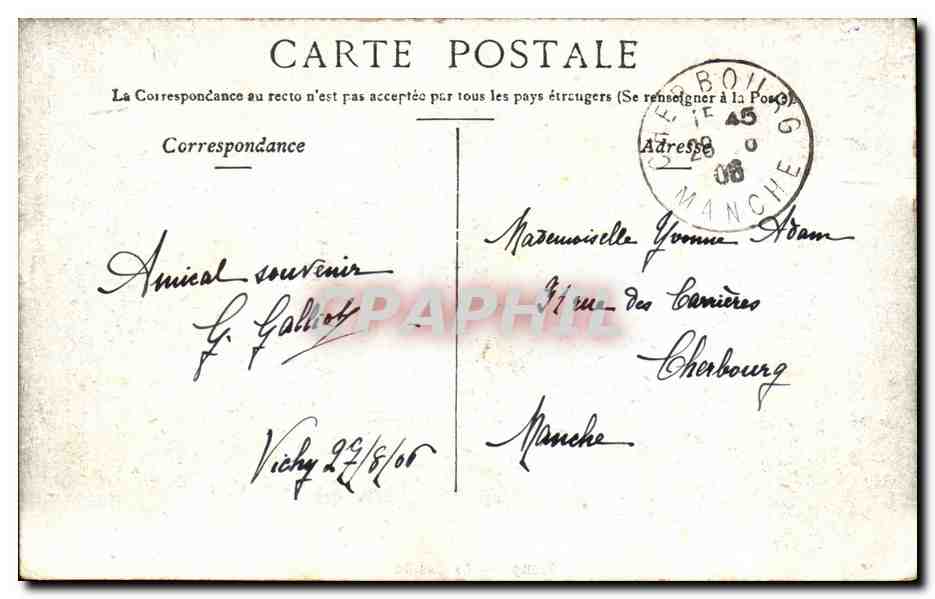 CARTE POSTALE
La Correspondance au recto n'est pas acceptée par tous les pays étrangers (Se renseigner à la Poste).
Correspondance
Amical souvenir
G. Galliot
Vichy 27/8/06
Adresse
Mademoiselle Yvonne Adam
rue des Carrières
Cherbourg
Manche
CHERBOURG
45
28 8
06
MANCHE
CPAPHIL